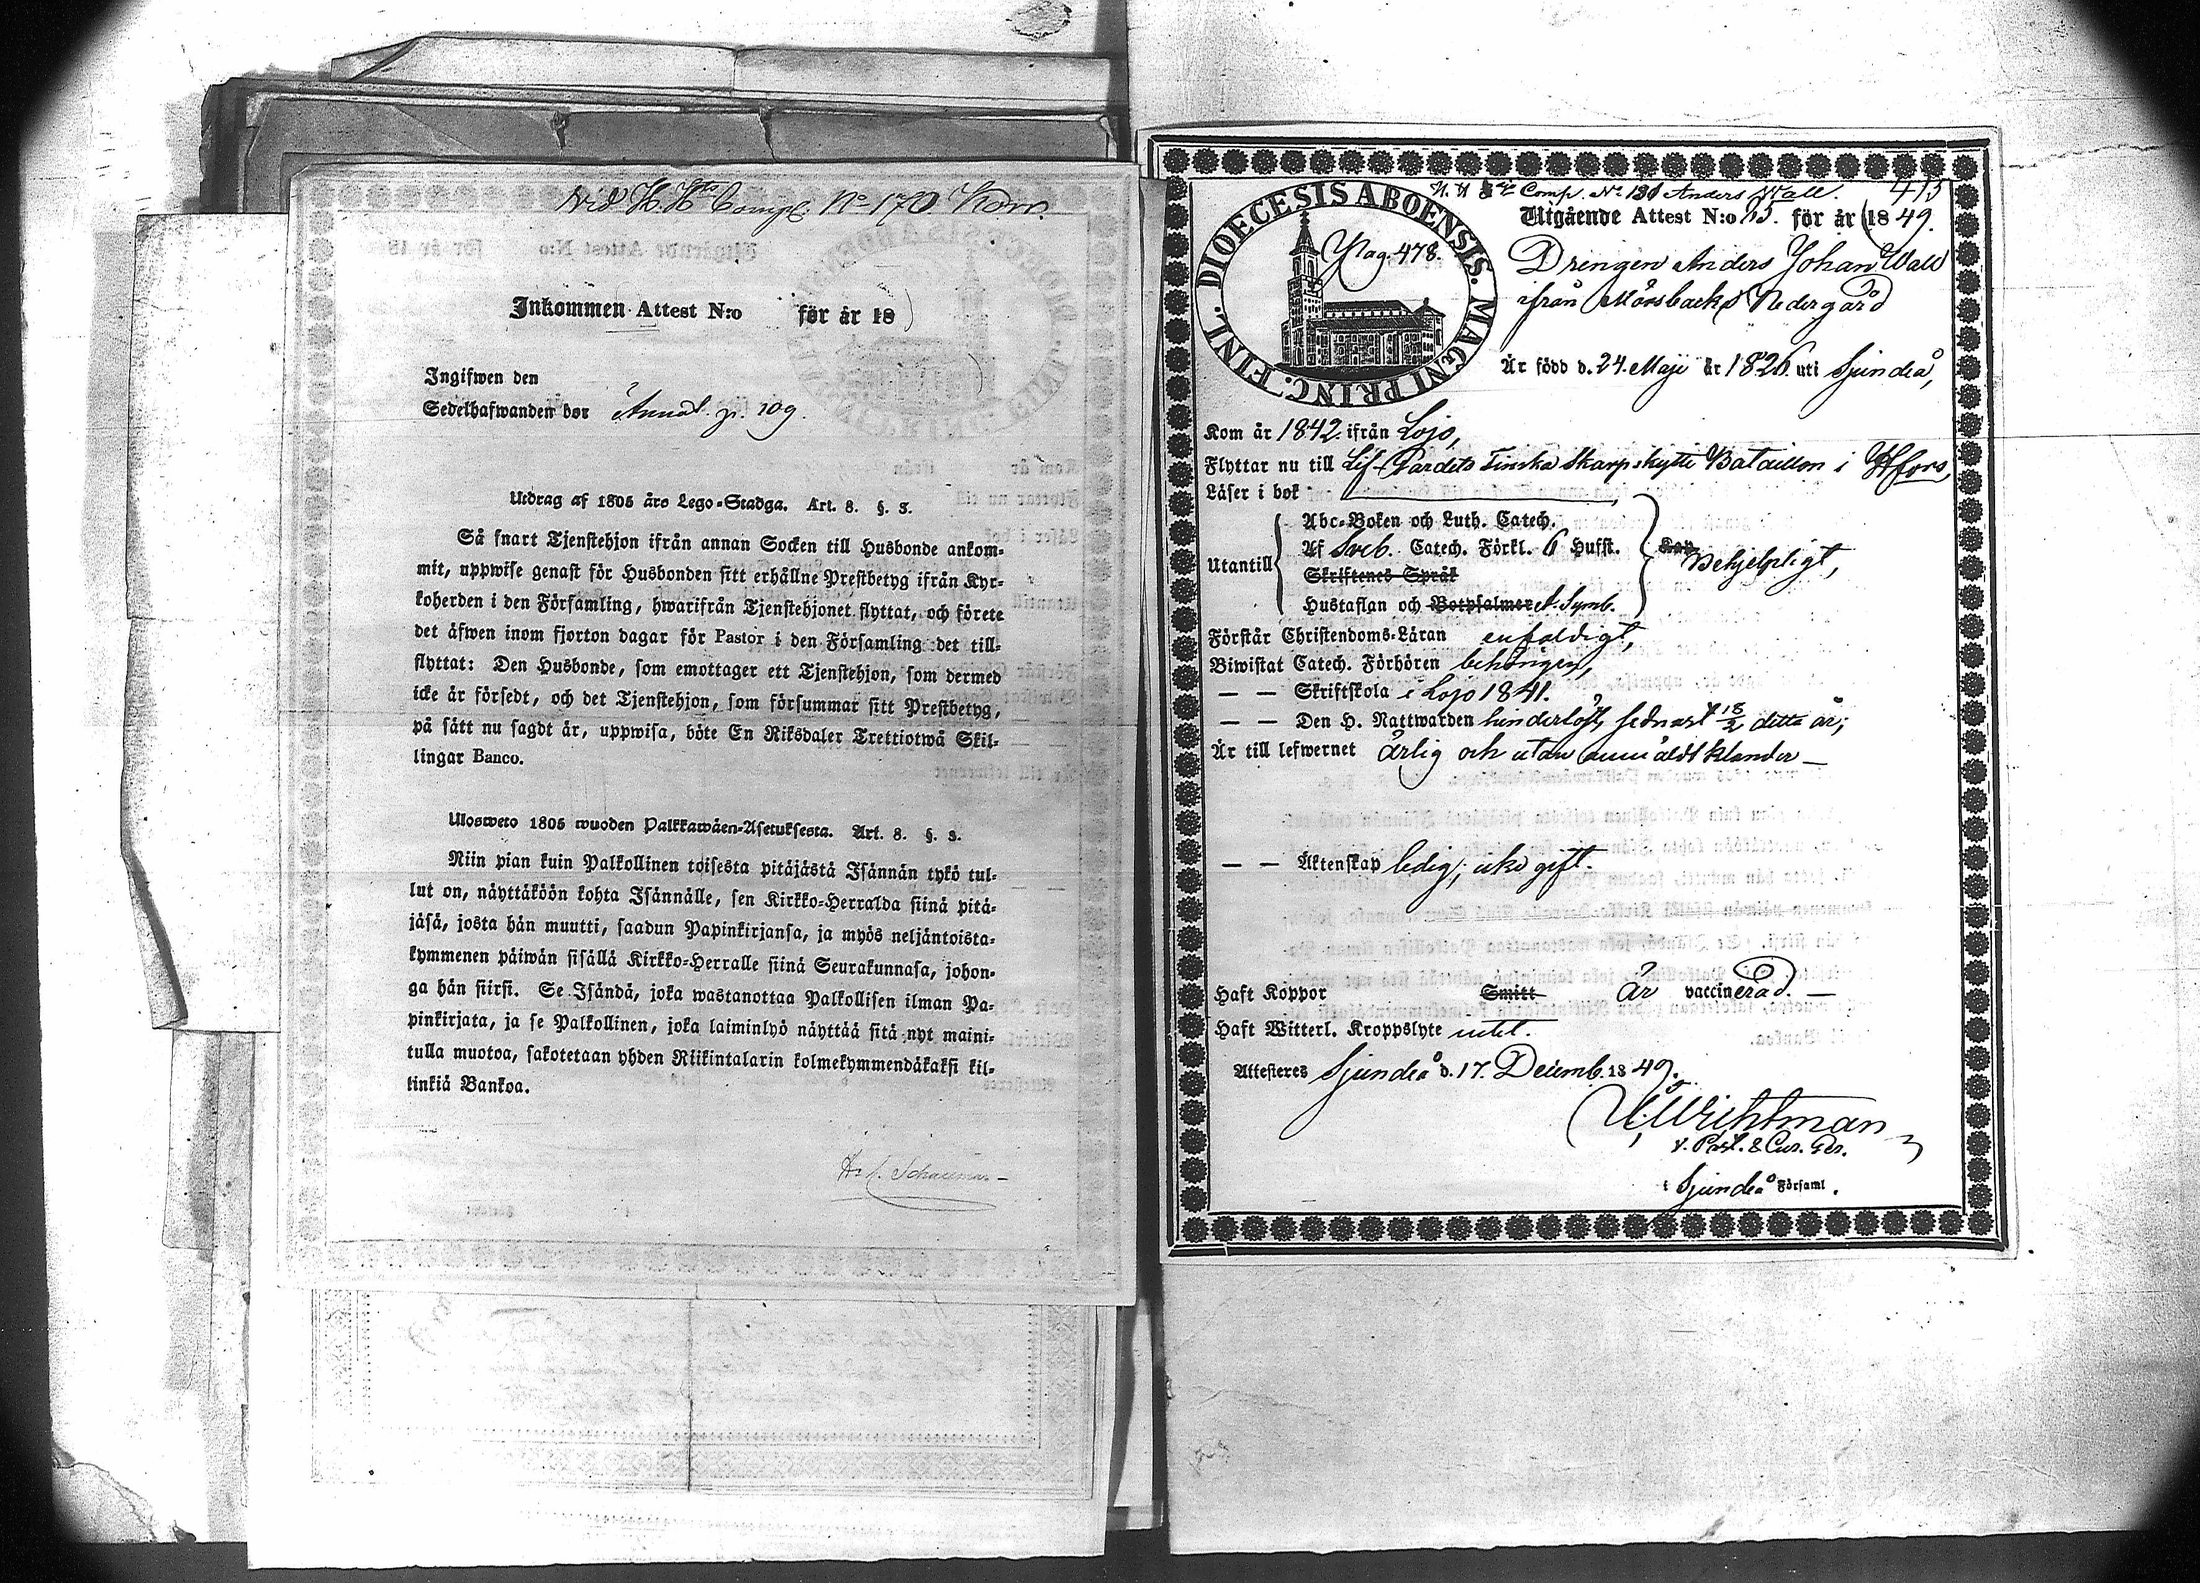 vid H. H:s Comp. No 170 Korr.
Inkommen Attest N:o för år 18
Ingifwen den
Sedelhafwanden bor Annal. p. 109.
Utdrag af 1805 års Lego-Stadga. Art. 8. §. 3.
Så snart Tjenstehjon ifrån annan Socken till Husbonde ankom-
mit, uppwise genast för Husbonden sitt erhållne Prestbetyg ifrån Kyr-
koherden i den Församling, hwarifrån Tjenstehjonet flyttat, och förete
det äfwen inom fjorton dagar för Pastor i den Församling det till-
flyttat: Den Husbonde, som emottager ett Tjenstehjon, som dermed
icke är försedt, och det Tjenstehjon, som försummar sitt Prestbetyg,
på sätt nu sagdt är, uppwisa, böte En Riksdaler Trettiotwå Skil-
lingar Banco.
Ulosweto 1805 wuoden Palkkawäen-Asetuksesta. Art. 8. §. 3.
Niin pian kuin Palkollinen toisesta pitäjästä Isännän tykö tul-
lut on, näyttäköön kohta Isännälle, sen Kirkko-Herralda siinä pitä-
jäsä, josta hän muutti, saadun Papinkirjansa, ja myös neljäntoista-
kymmenen päiwän sisällä Kirkko-Herralle siinä Seurakunnasa, johon-
ga hän siirsi. Se Isändä, joka wastanottaa Palkollisen ilman Pa-
pinkirjata, ja se Palkollinen, joka laiminlyö näyttää sitä nyt maini-
tulla muotoa, sakotetaan yhden Riikintalarin kolmekymmendäkaksi kil-
linkiä Bankoa.
Schauman
H. H. Comp. No 131 Anders Wall. 415
DIOECESIS ABOENSIS. MAGNI PRINC. FINL.
Pag. 478.
Utgående Attest N:o 13. för år 1849.
Drängen Anders Johan Wall
ifrån Mörsbacka Nedergård
Är född d. 24. Maji år 1826 uti Sjundeå,
Kom år 1842. ifrån Lojo,
Flyttar nu till Lif-Gardets Finska Skarpskytte Bataillon i Hfors,
Läser i bok
Abc-Boken och Luth. Catech.
Utantill Af Sveb. Catech. Förkl. 6 Hufst. behjelpligt,
Skriftenes Språk
Hustaflan och Botpsalmer A. Symb.
Förstår Christendoms-Läran enfaldigt,
Biwistat Catech. Förhören behörigen,
— — Skriftskola i Lojo 1841.
— — Den H. Nattwarden hinderlöst, sednast 18/2 detta år;
Är till lefwernet ärlig och utan anmäldt klander —
— — Äktenskap ledig; icke gift.
Haft Koppor Smitt är vaccinerad. —
Haft Witterl. Kroppslyte intet.
Attesteres Sjundeå d. 17. Decemb. 1849.
Wichtman
v. Past. & Cur. Ger.
i Sjundeå Församl.